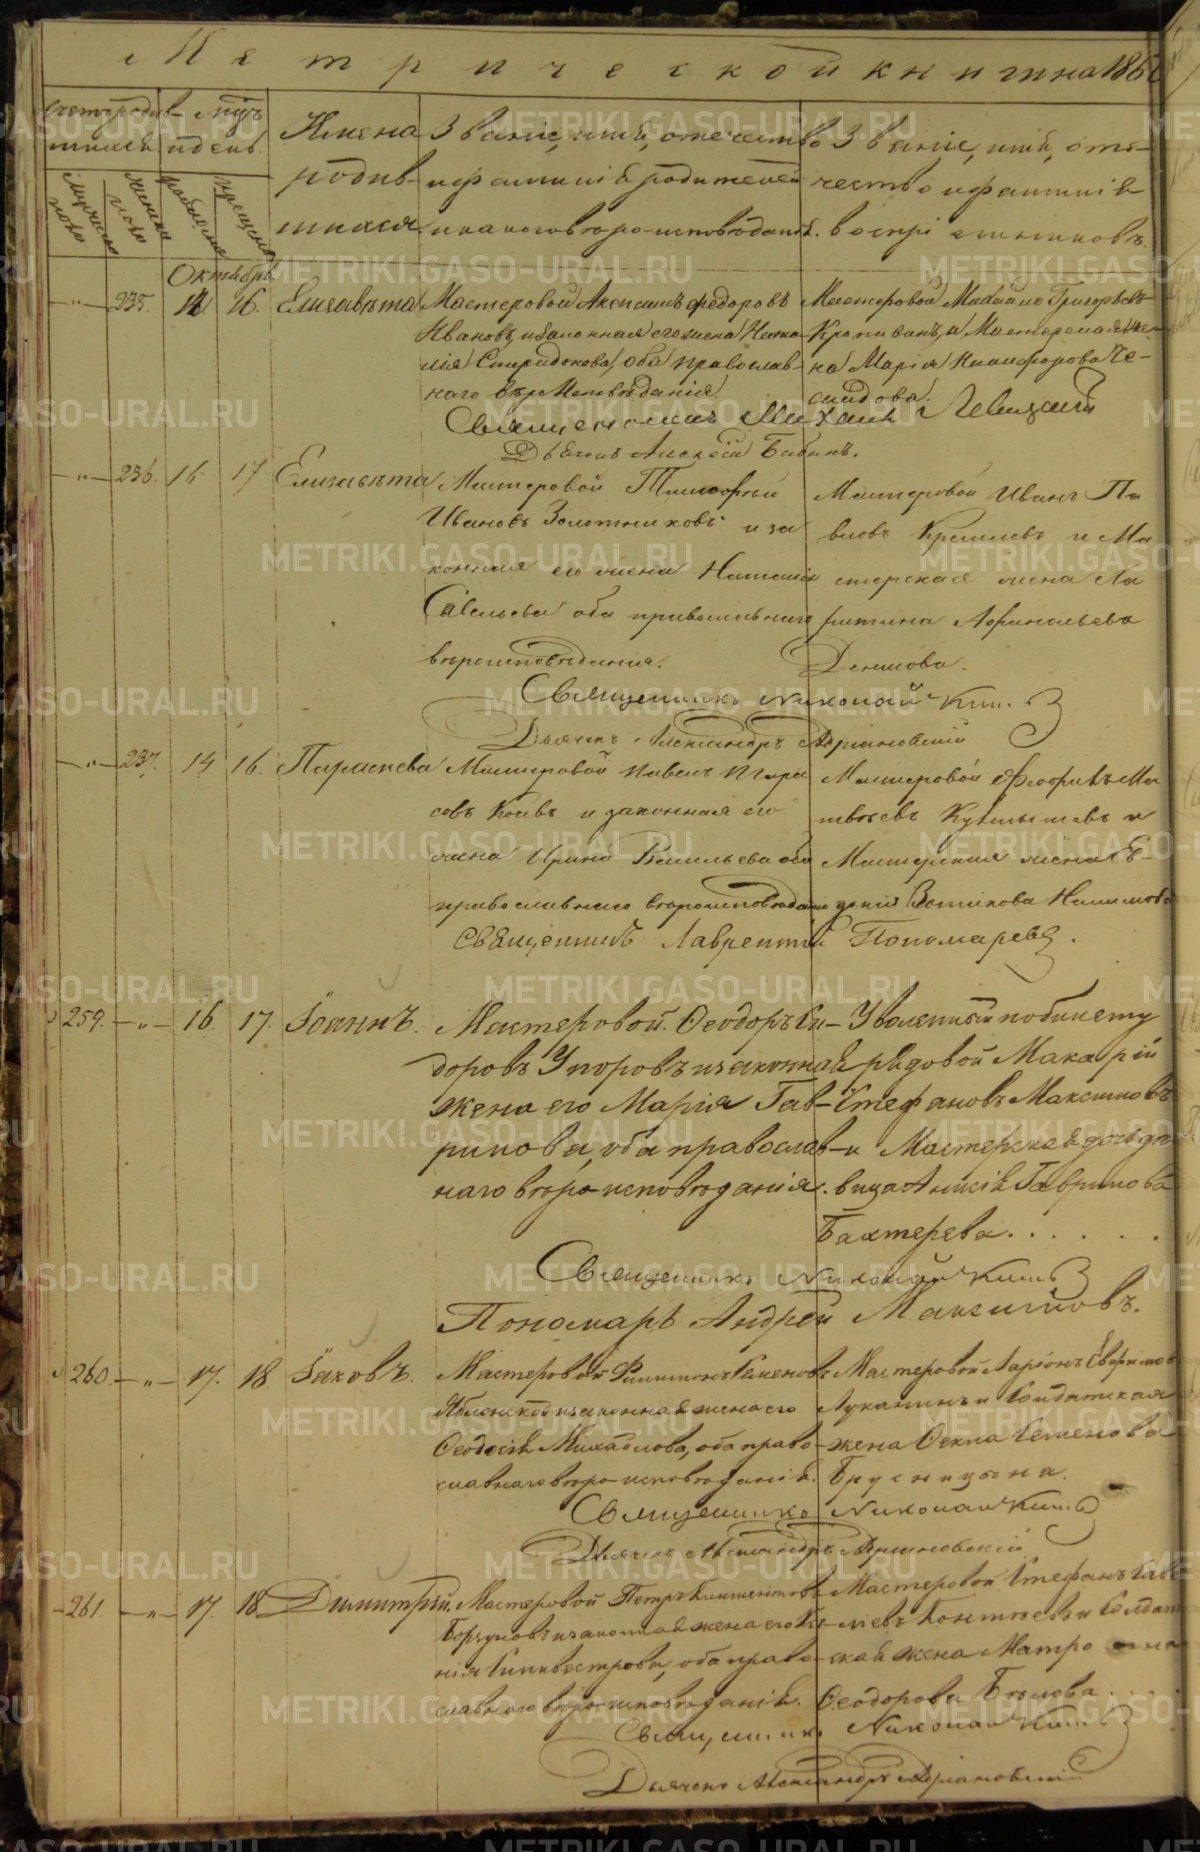 Метрической книги на 186
Счетъ родив- Мѣсяцъ
шихся и день.
Мужеска пола
Женска пола
рожденія
крещенія
Имена родив- шихся
Званіе, имя, отечество
и фамилія родителей
и какого вѣро-исповѣданія.
Званіе, имя, оте-
чество и фамилія
воспріемниковъ.
Октябрь
-"- 235. 14 16. Елизавѣта
Мастеровой Алексѣй Ѳедоровъ
Ивановъ, и законная его жена Ната-
лія Спиридонова, оба православ-
наго вѣроисповѣданія.
Мастеровой Михаило Григорьевъ
Кропиванъ, и Мастерская же-
на Марія Никифорова Че-
снидова.
Священникъ Михаилъ Левицкій
Дьячекъ Алексій Бабинъ.
-"- 236. 16 17 Елизавѣта
Мастеровой Тимофей
Ивановъ Золотниковъ и за
конная его жена Наталія
Савельева оба православнаго
вѣроисповѣданія.
Мастеровой Иванъ Па
вловъ Кремлевъ и Ма
стерская жена
Афанасьева
Денисова.
Священникъ Николай
Дьячекъ Александръ Адріановскій
-"- 237. 14 16. Параскева
Мастеровой Павелъ Тара
совъ Коевъ и законная его
жена Ирина Васильева оба
православнаго вѣроисповѣдан
Мастеровой Феофилъ Ма
твѣевъ и
Мастерская жена Е-
докія
Священникъ Лаврентій Пономаревъ.
259. -"- 16. 17. Іоаннъ.
Мастеровой Ѳеодоръ Си-
доровъ Упоровъ и законная
жена его Марія Гав-
рилова, оба православ-
наго вѣро-исповѣданія.
Уволенный по билету
рядовой Макарій
Стефановъ Максимовъ
и Мастерская дочь дѣ-
вица Анисія Гаврилова
Бахтерева......
Священникъ Николай
Пономарь Андрей Максимовъ.
260. -"- 17. 18. Іаковъ.
Мастеровой Филимонъ Семеновъ
Яблонской и законная жена его
Ѳеодосія Михайлова, оба право-
славнаго вѣро-исповѣданія.
Мастеровой Ларіонъ
Луканинъ и Солдатская
жена Ѳекла Семенова
Брусницына.
Священникъ Николай
Дьячекъ Александръ Адріановскій
-261. -"- 17. 18 Димитрій.
Мастеровой Петръ Климентовъ
Борзуновъ и законная жена его Ксе-
нія Сильвестрова, оба право-
славнаго вѣро-исповѣданія.
Мастеровой Стефанъ Саве-
льевъ и Солдат-
ская жена Матро на
Ѳеодорова Бѣлова...
Священникъ Николай
Дьячекъ Александръ Адріановскій
METRIKI.GASO-URAL.RU